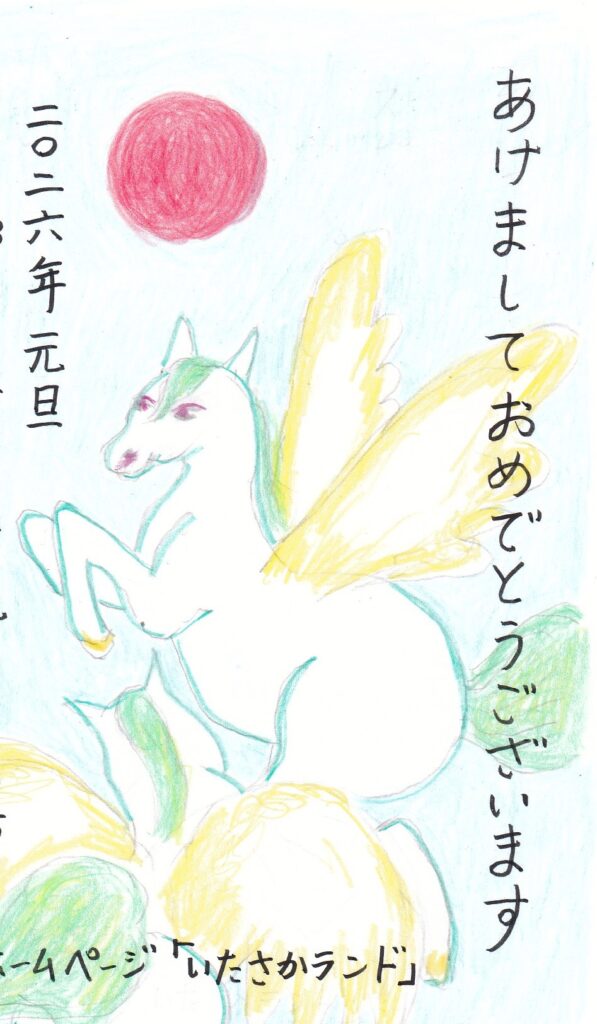 あけましておめでとうございます
二〇二六年元旦
ホームページ「いたさかランド」